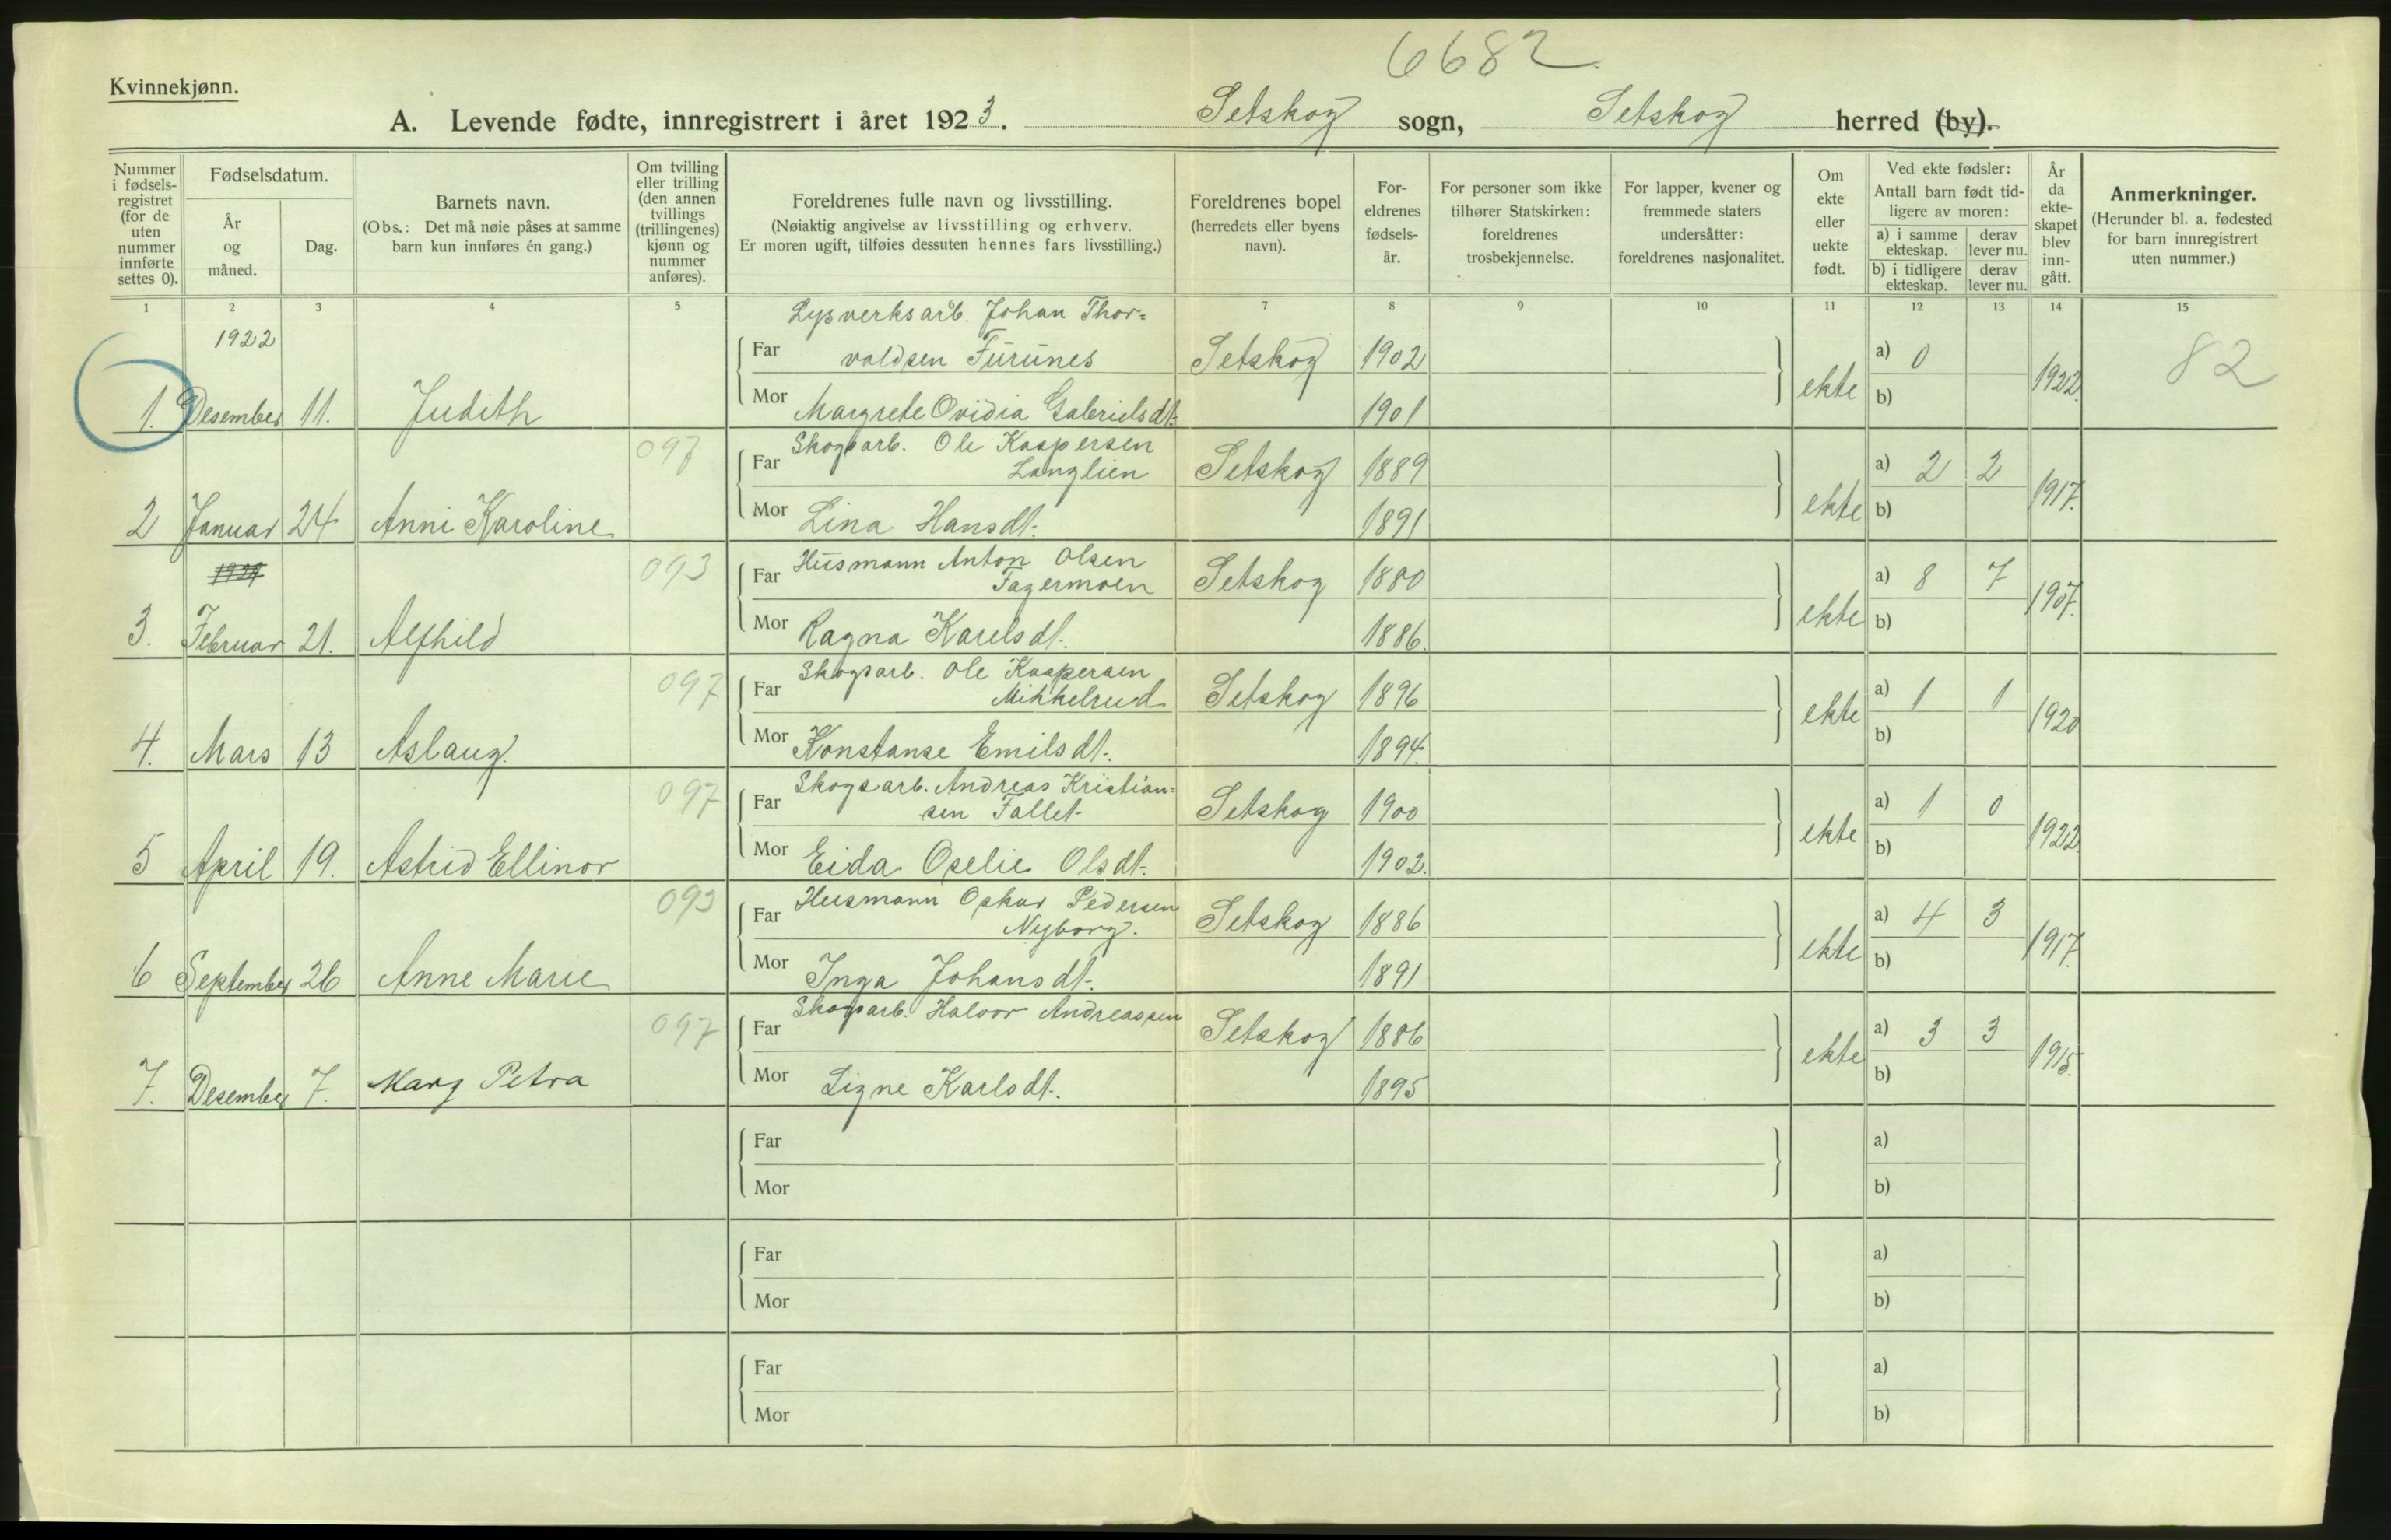 6682
Kvinnekjønn.
A. Levende fødte, innregistrert i året 1923. Setskog sogn, Setskog herred (by).
Nummer i fødselsregistret (for de uten nummer innførte settes 0).
Fødselsdatum.
År og måned.
Dag.
Barnets navn.
(Obs.: Det må nøie påses at samme barn kun innføres én gang.)
Om tvilling eller trilling (den annen tvillings (trillingenes) kjønn og nummer anføres).
Foreldrenes fulle navn og livsstilling.
(Nøiaktig angivelse av livsstilling og erhverv.
Er moren ugift, tilføies dessuten hennes fars livsstilling.)
Foreldrenes bopel
(herredets eller byens navn).
Foreldrenes fødselsår.
For personer som ikke tilhører Statskirken: foreldrenes trosbekjennelse.
For lapper, kvener og fremmede staters undersåtter: foreldrenes nasjonalitet.
Om ekte eller uekte født.
Ved ekte fødsler:
Antall barn født tidligere av moren:
a) i samme ekteskap. derav lever nu.
b) i tidligere ekteskap. derav lever nu.
År da ekteskapet blev inngått.
Anmerkninger.
(Herunder bl. a. fødested for barn innregistrert uten nummer.)
1 2 3 4 5 7 8 9 10 11 12 13 14 15
Lysverksarb. Johan Thor=
1922 Far valdsen Furunes Setskog 1902 a) 0 82
1. Desember 11. Judith Mor Margrete Ovidia Gabrielsdt. 1901 ekte b) 1922.
097 Skogsarb. Ole Kaspersen
Far Langlien Setskog 1889 a) 2 2
2 Januar 24 Anni Karoline Mor Lina Hansdt. 1891 ekte b) 1917.
093 Husmann Anton Olsen
Far Fagermoen Setskog 1880 a) 8 7
3. Februar 21. Alfhild Mor Ragna Karelsdt. 1886. ekte b) 1907.
097 Skogsarb. Ole Kaspersen
Far Mikkelrud Setskog 1896 a) 1 1
4. Mars 13 Aslaug. Mor Konstanse Emilsdt. 1894. ekte b) 1920
097 Skogsarb. Andreas Kristian=
Far sen Fallet Setskog 1900 a) 1 0
5 April 19. Astrid Ellinor Mor Eida Oselie Olsdt. 1902. ekte b) 1922.
093 Husmann Oskar Pedersen
Far Nyborg. Setskog 1886 a) 4 3
6 September 26 Anne Marie Mor Inga Johansdt. 1891 ekte b) 1917.
097 Skogsarb. Halvor Andreassen
Far Setskog 1886 a) 3 3
7. Desember 7. Mary Petra Mor Signe Karlsdt. 1895 ekte b) 1915.
Far a)
Mor b)
Far a)
Mor b)
Far a)
Mor b)